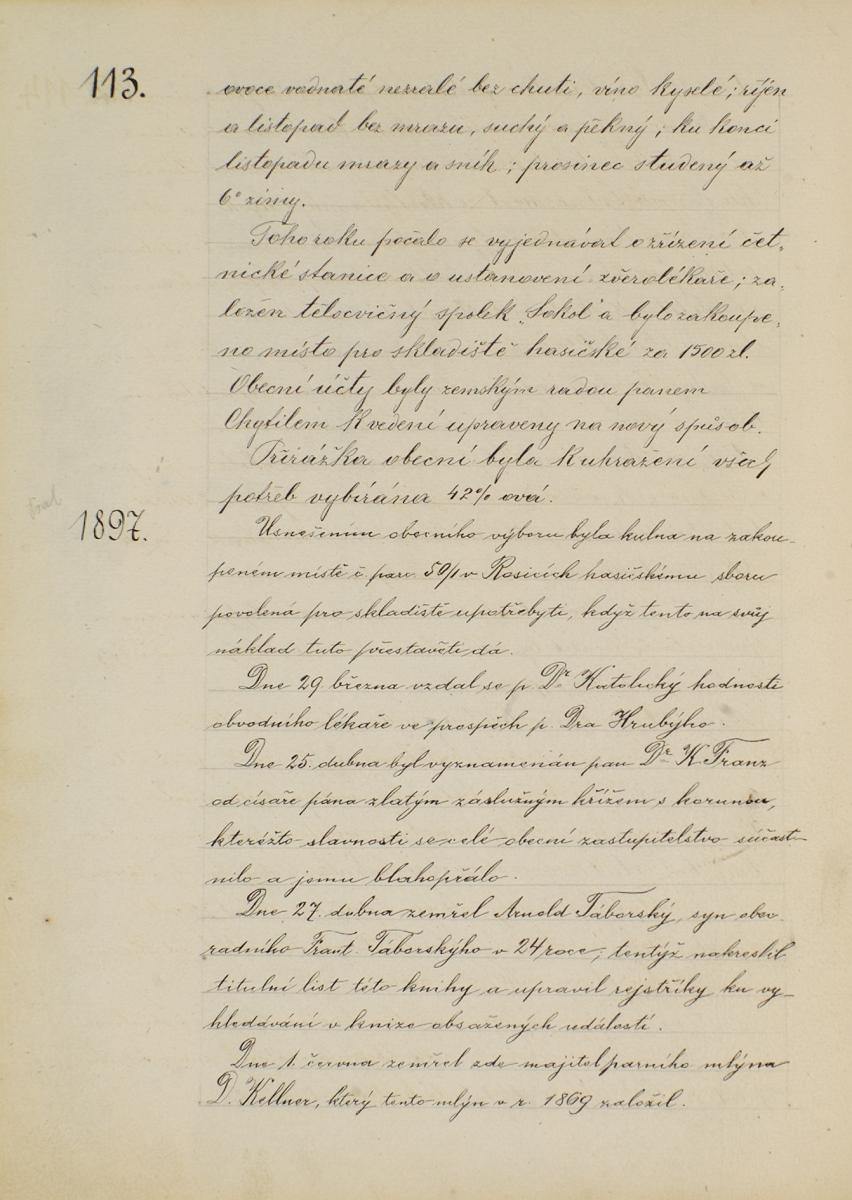 113.
ovoce vodnaté nezralé bez chuti, víno kyselé; říjen
a listopad bez mrazu, suchý a pěkný; ku konci
listopadu mrazy a sníh; prosinec studený až
6° zimy.
Toho roku počalo se vyjednávat o zřízení čet-
nické stanice a o ustanovení zvěrolékaře; za-
ložen tělocvičný spolek „Sokol" a bylo zakoupe-
no místo pro skladiště hasičské za 1500 zl.
Obecní účty byly zemským radou panem
Chytilem k vedení upraveny na nový spůsob.
Přirážka obecní byla k uhražení všech
potřeb vybírána 42% ová.
1897.
Usnešením obecního výboru byla kulna na zakou-
peném místě č. parc. 50/1 v Rosicích hasičskému sboru
povolená pro skladiště upotřebyti, když tento na svůj
náklad tuto přestavěti dá.
Dne 29. března vzdal se p. Dr. Katolický hodnosti
obvodního lékaře ve prospěch p. Dra Hrubýho.
Dne 25. dubna byl vyznamenán pan Dr. K Franz
od císaře pána zlatým záslužným křížem s korunou,
kteréžto slavnosti se celé obecní zastupitelstvo súčast-
nilo a jemu blahopřálo.
Dne 27. dubna zemřel Arnold Táborský, syn obec.
radního Frant. Táborskýho v 24 roce, tentýž nakreslil
titulní list této knihy a upravil rejstříky ku vy-
hledávání v knize obsažených událostí.
Dne 1. června zemřel zde majitel parního mlýna
D. Kellner, který tento mlýn v r. 1869 založil.